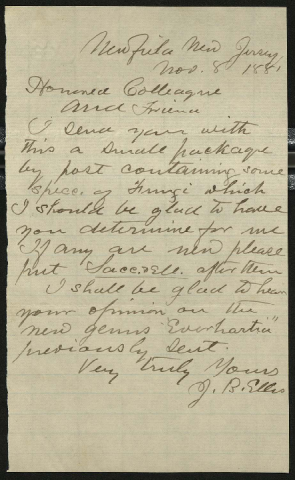 Newfield New Jersey
Nov. 8 1881
Honored Colleague
and Friend
I send you with
this a small package
by post containing some
spec. of Fungi which
I should be glad to have
you determine for me
If any are new please
put Sacc. & E. after them
I shall be glad to hear
your opinion on the
new genus "Everhartia"
previously sent.
Very truly Yours
J. B. Ellis